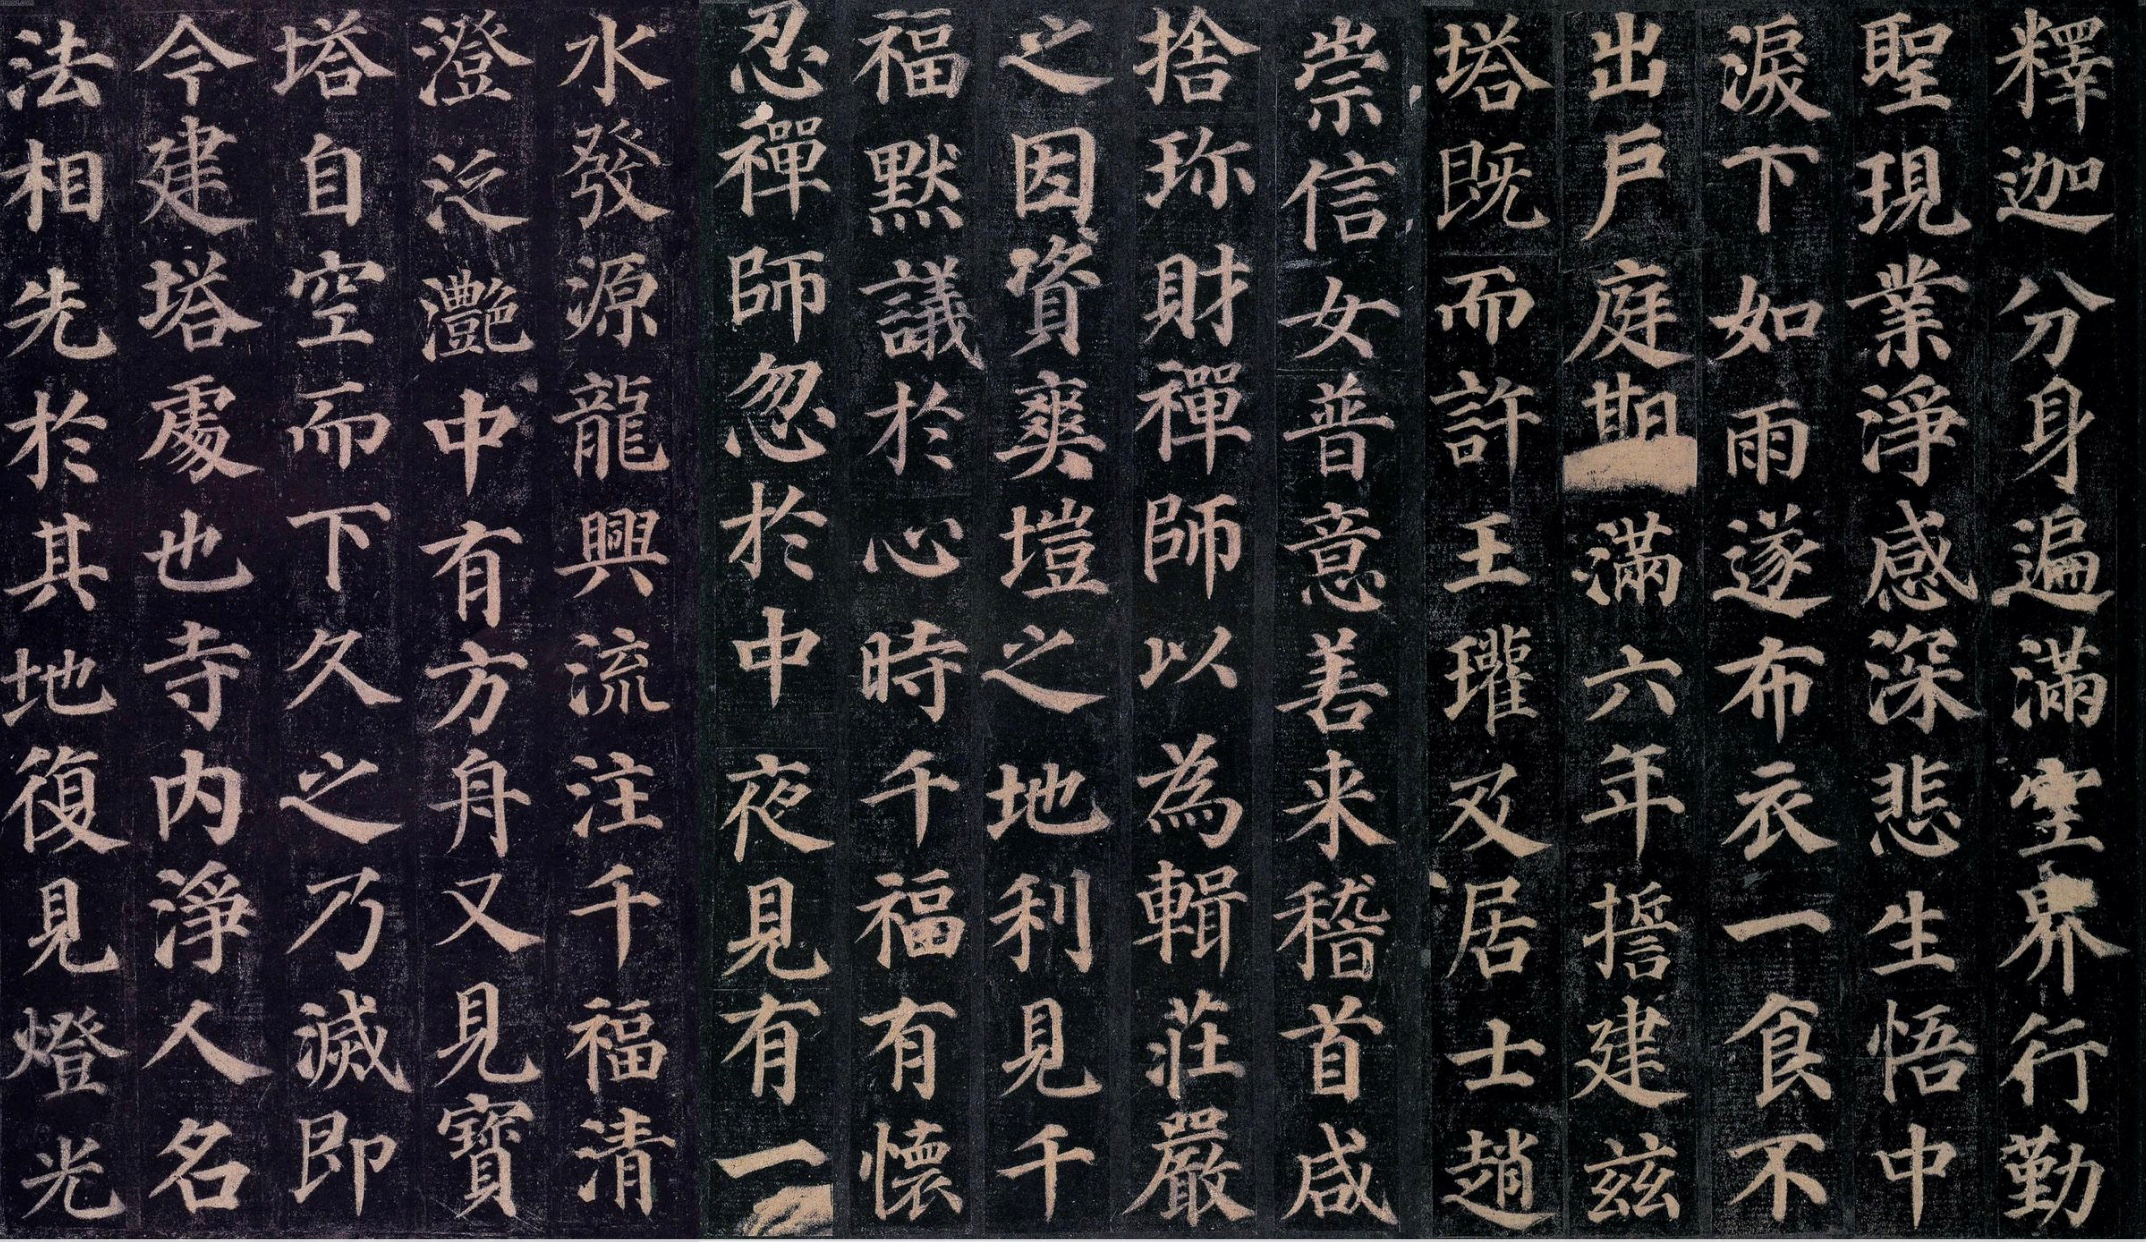 釋迦分身遍滿空界行勤
聖現業淨感深悲生悟中
淚下如雨遂布衣一食不
出戶庭期滿六年誓建茲
塔既而許王瓘及居士趙
崇信女普意善来稽首咸
捨珎財禪師以為輯莊嚴
之因資爽塏之地利見千
福默議於心時千福有懷
忍禪師忽於中夜見有一
水發源龍興流注千福清
澄泛灩中有方舟又見寶
塔自空而下久之乃滅即
今建塔處也寺内淨人名
法相先於其地復見燈光